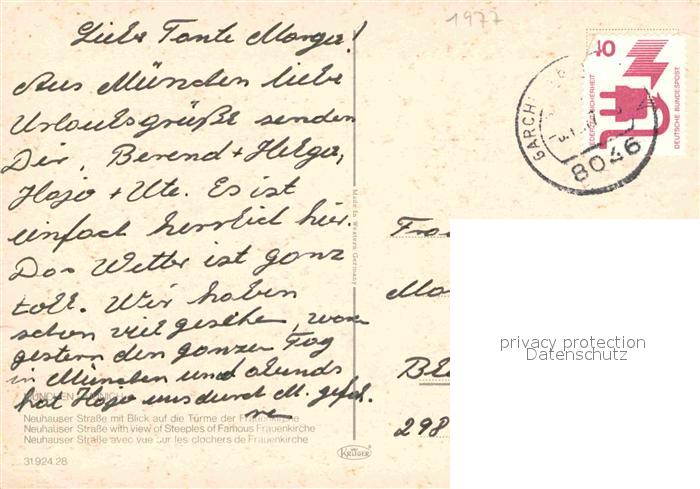 1977
Liebe Tante Marga!
Aus München liebe
Urlaubsgrüße senden
Dir, Berend + Helga,
Hajo + Ute. Es ist
einfach herrlich hier.
Das Wetter ist ganz
toll. Wir haben
schon viel gesehen, waren
gestern den ganzen Tag
in München und abends
hat Hajo uns durch M. gefah.
ren
MÜNCHEN
Neuhauser Straße mit Blick auf die Türme der Frauenkirche
Neuhauser Straße with view of Steeples of Famous Frauenkirche
Neuhauser Straße avec vue sur les clochers de Frauenkirche
31924.28
Made in Western Germany
KRÜGER
40
DEUTSCHE BUNDESPOST
GARCH
8046
Fra
Ma
298
privacy protection
Datenschutz